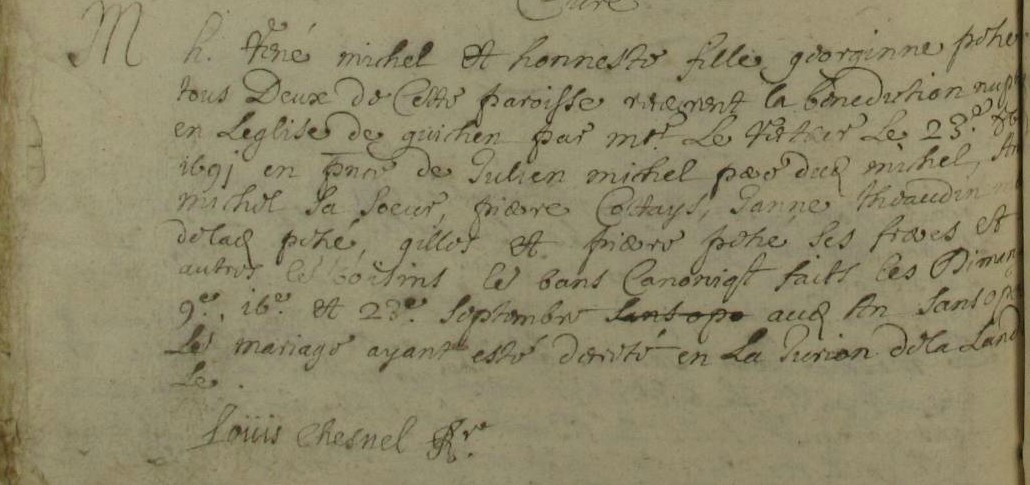 Curé
M h. René michel et honneste fille georginne pehé
tous Deux de Cette paroisse receurent la benediction nup
en Leglise de guichen par mre Le Le 23e 8b
1691 en pnce de Julien michel pere dud michel, An
michel Sa Soeur, pierre Costays, Janne theaudin m
delad pehé, gilles et pierre pehé ses freres et
autres les voisins les bans Canoniqt faits les Diman
9e, 16e et 23e Septembre sans opo aud An Sans opo
Le mariage ayant esté en La de la Land
Le.
Loüis Chesnel Rr